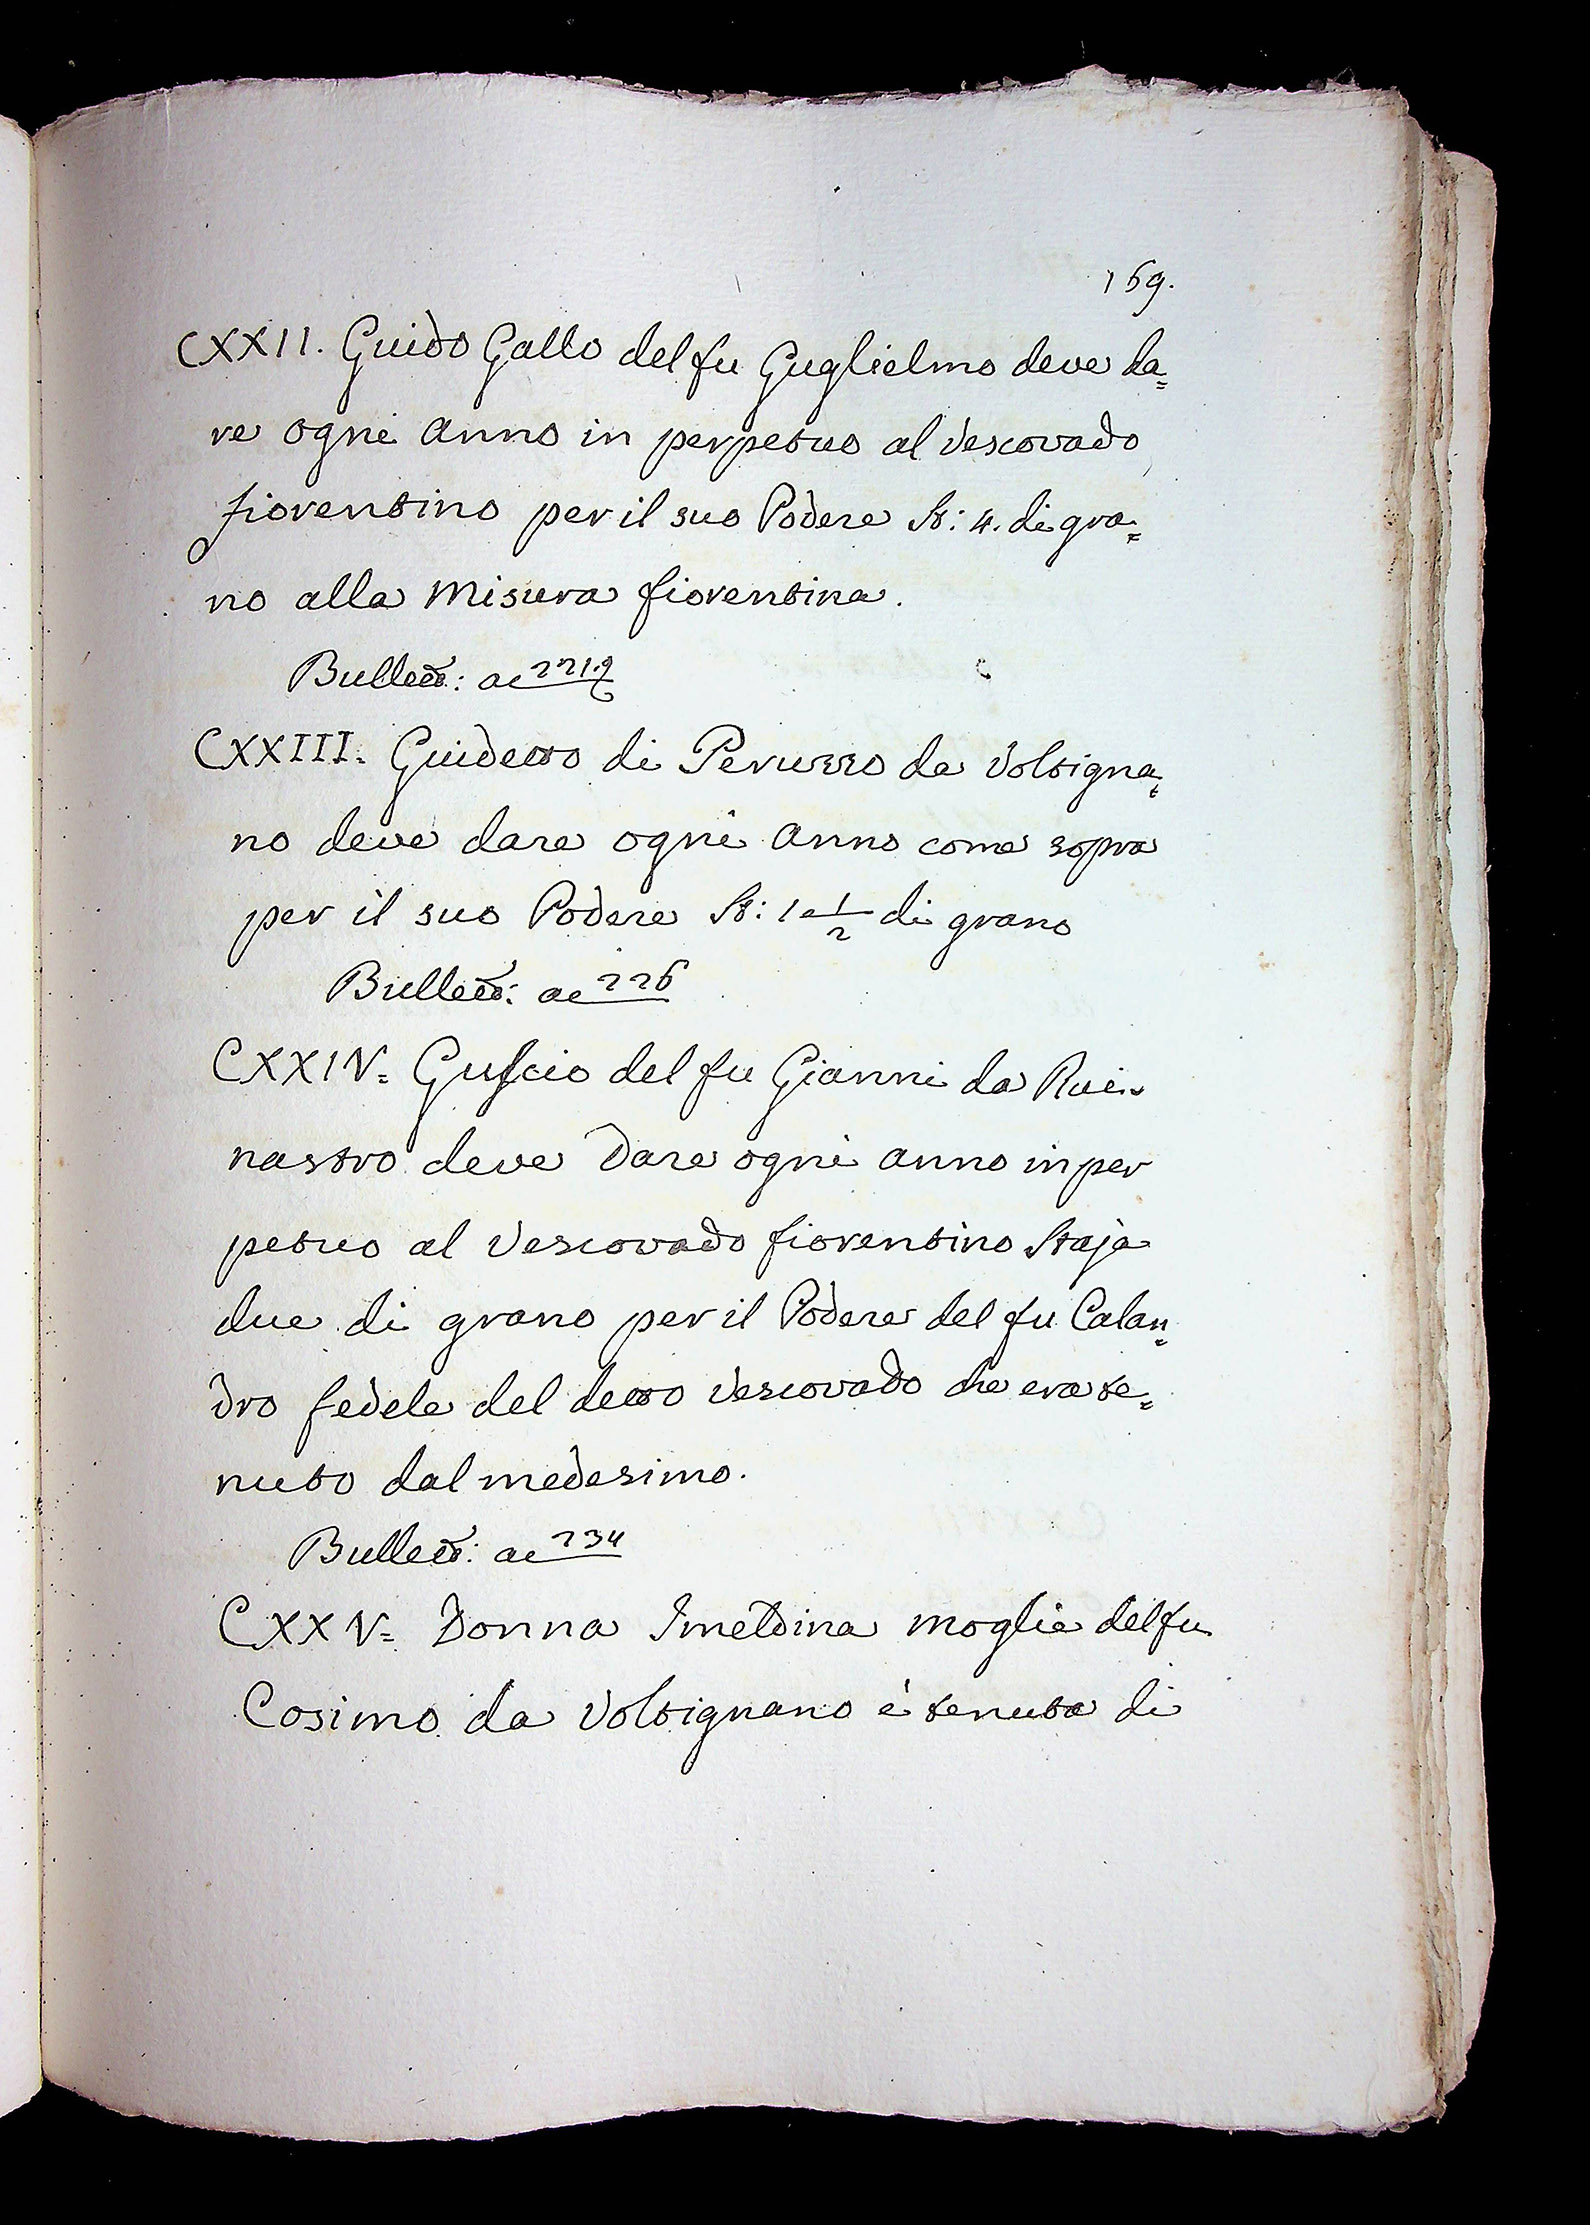 169.
CXXII. Guido Gallo del fu Guglielmo deve da=
re ogni anno in perpetuo al Vescovado
fiorentino per il suo Podere St: 4. di gra=
no alla Misura fiorentina.
Bullett: a c 221.
CXXIII. Guidetto di Peruzzo da Voltigna=
no deve dare ogni anno come sopra
per il suo Podere St: 1 e 1/2 di grano
Bullett: a c 226
CXXIV= Guscio del fu Gianni da Rui=
nastro deve dare ogni anno in per
petuo al Vescovado fiorentino Staja
due di grano per il Podere del fu Calan=
dro fedele del detto Vescovado che era te=
nuto dal medesimo.
Bullett: a c 234
CXXV= Donna Imeldina moglie del fu
Cosimo da Voltignano è tenuta di